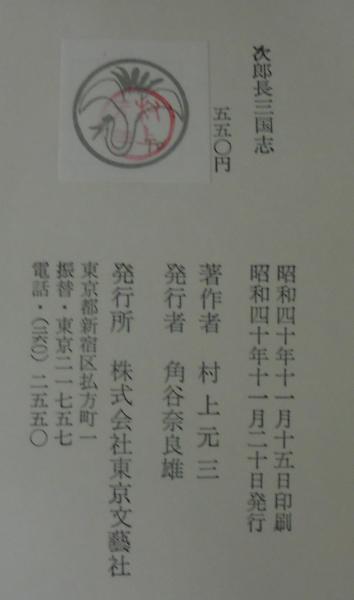 次郎長三国志
五五〇円
村上
昭和四十年十一月十五日印刷
昭和四十年十一月二十日発行
著作者 村上元三
発行者 角谷奈良雄
発行所 株式会社東京文藝社
東京都新宿区払方町一
振替・東京二一七五七
電話・(三六〇)二五五〇